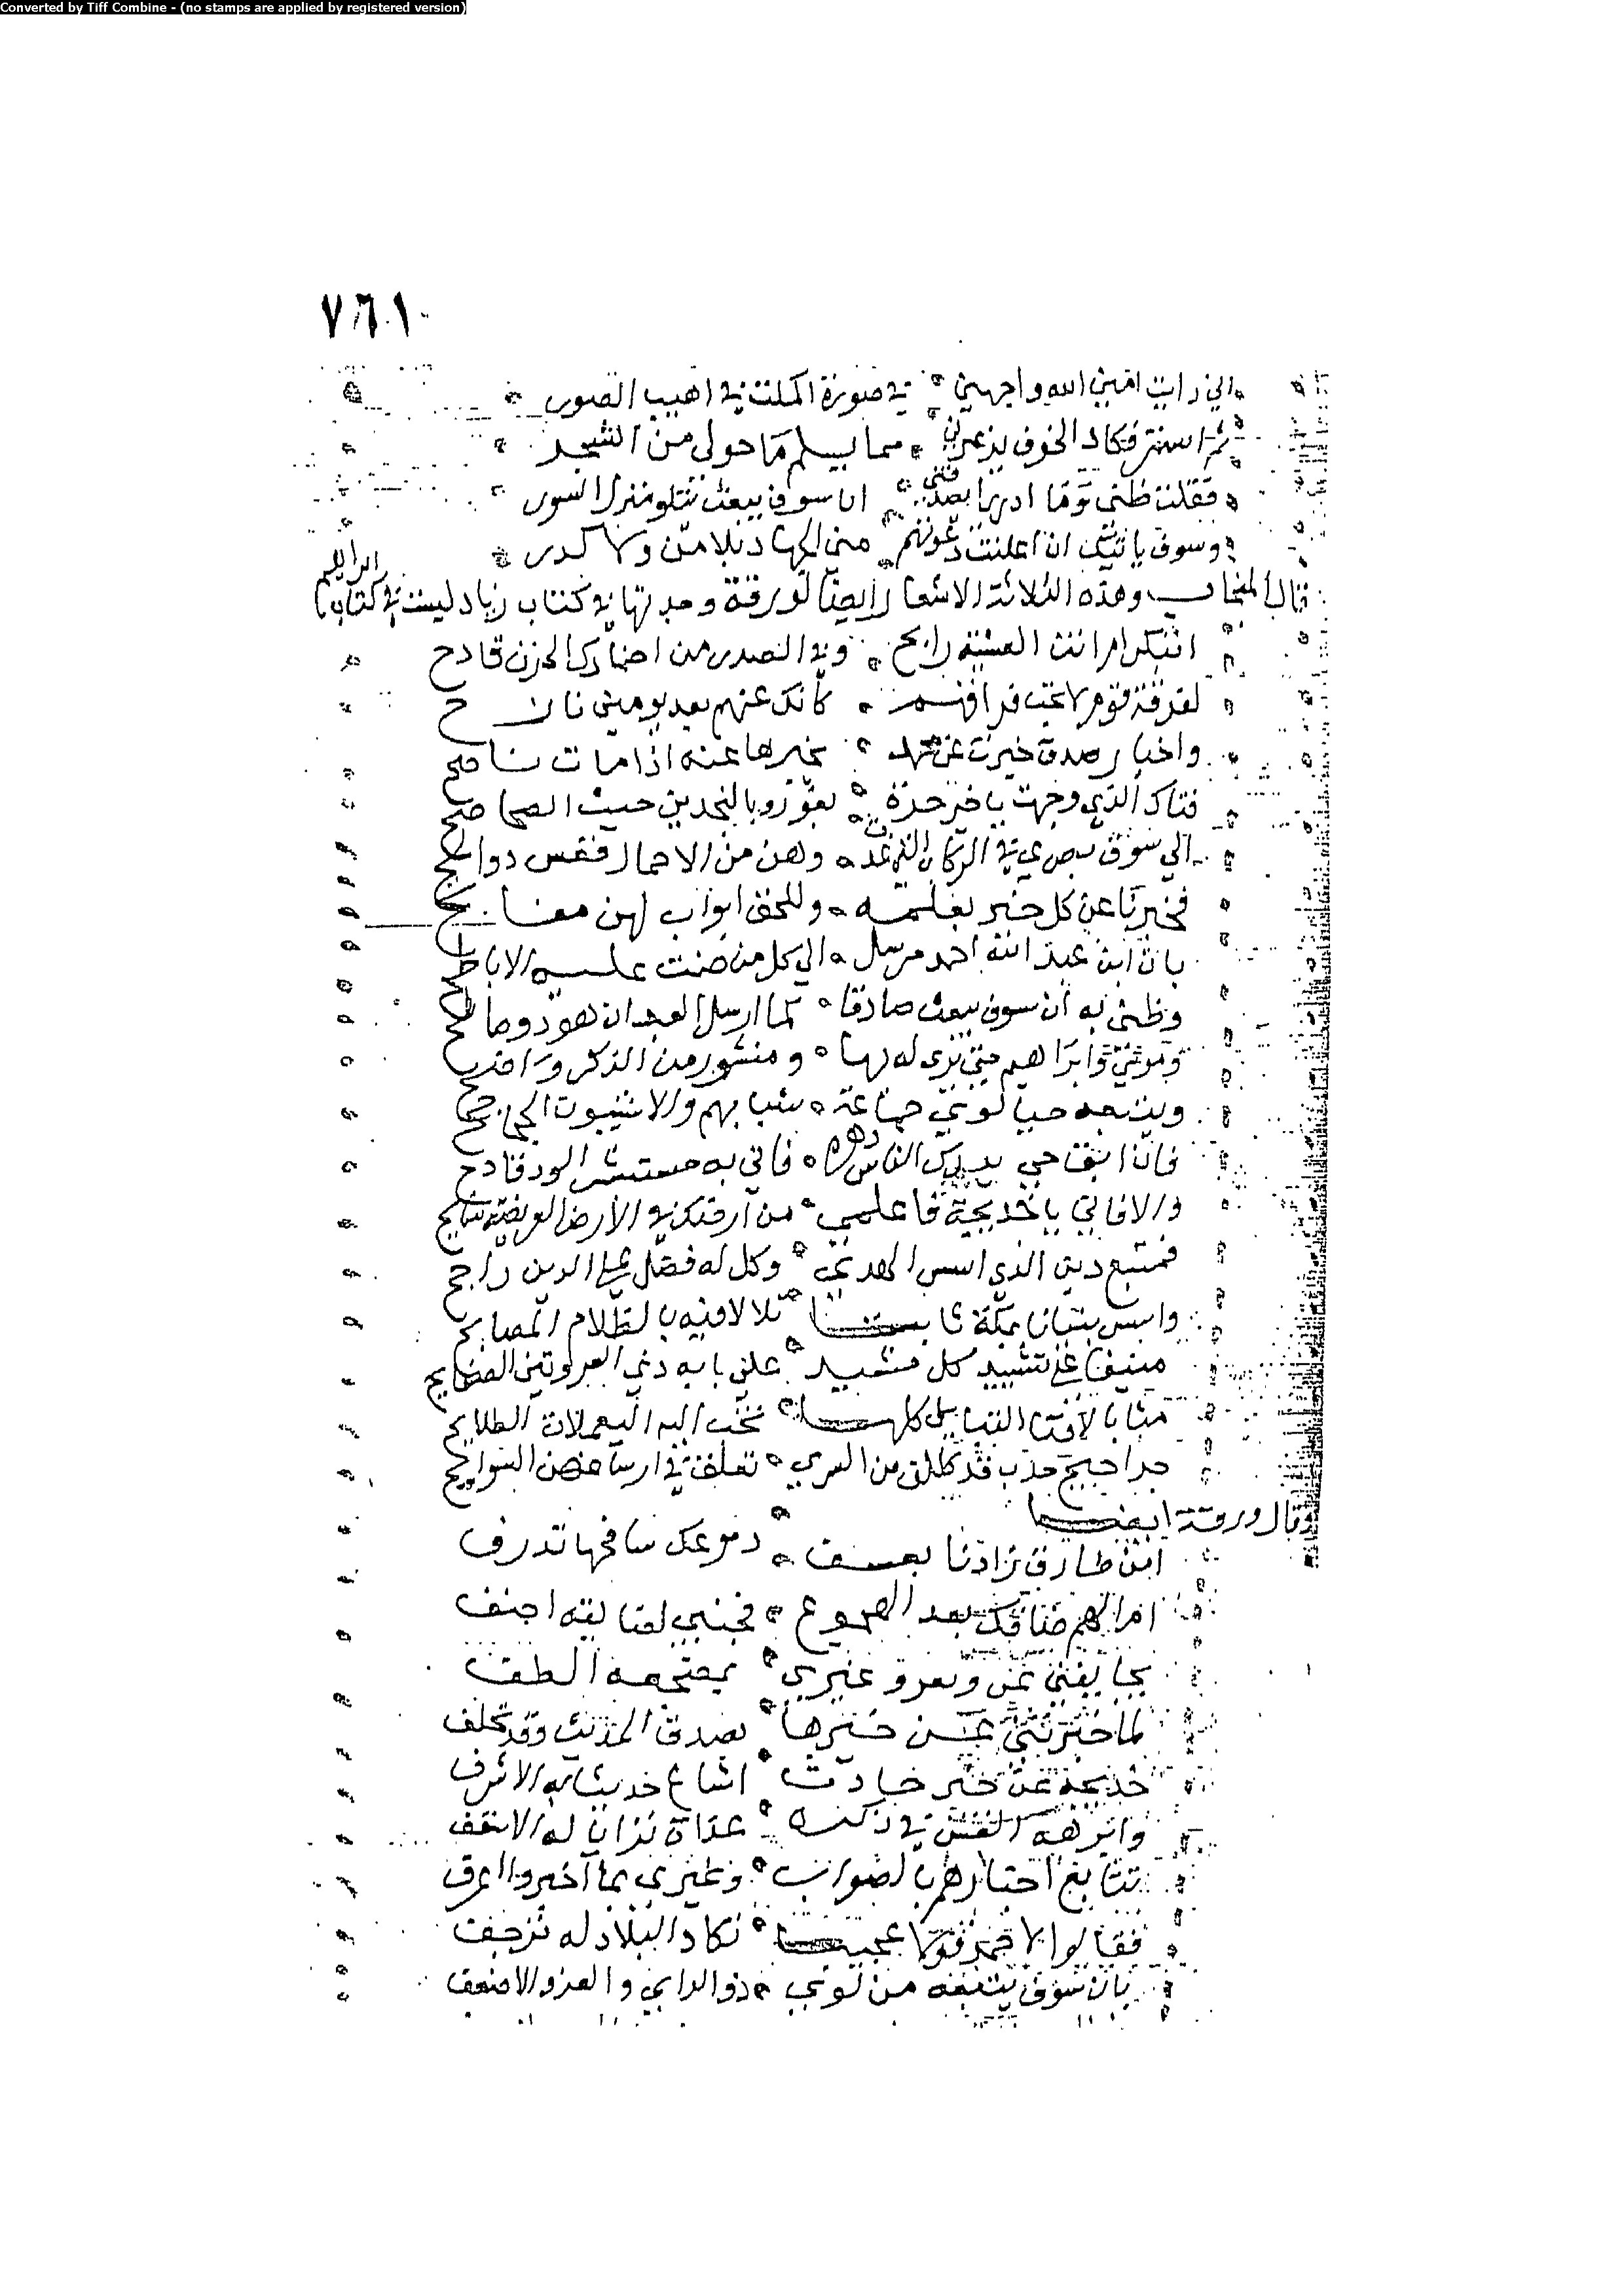 Converted by Tiff Combine - (no stamps are applied by registered version)
٧٦١
اني رايت امين الله واجهني في صورة اكملت في اهيب الصور
ثم استمر فكاد الخوف يذعرني مما يسلم ما حولي من الشجر
فقلت ظني وما ادري ايصدقني ان سوف يبعث تتلو منزل السور
وسوف ياتيك ان اعلنت دعوتهم من الجهاد بلا من ولا كدر
قال المنجاب وهذه الثلاثة الاشعار ايضا لورقة وجدتها في كتاب زياد ليست في كتاب ابراهيم
اتبكر ام انت العشية رايح وفي الصدر من اضمارك الحزن قادح
لفرقة قوم لا تحب فراقهم كانك عنهم بعد يومين نازح
واخبار صدق خبرت عن محمد يخبرها عنه اذا مات ناصح
فتاك الذي وجهت يا خير حرة بغور وبالنجدين حيث الصحاصح
الي سوق بصري في الركاب التي غدت وهن من الاحمال قعس دوالح
فخبرنا عن كل خبر بعلمه وللحق ابواب لهن مفاتح
بان ابن عبد الله احمد مرسل الي كل من ضمت عليه الاباطح
وظني به ان سوف يبعث صادقا كما ارسل العبدان هود وصالح
وموسي وابراهيم حتي يري له بها ومنشور من الذكر واضح
ويتبعه حيا لوي جماعة شبابهم والاشيبون الجحاجح
فان ابق حتي يدرك الناس دهره فاني به مستبشر الود فادح
والا فاني يا خديجة فاعلمي من ارضك في الارض العريضة سايح
فمتبع دين الذي اسس الهدي وكل له فضل علي الدين راجح
واسس بنيانا بمكة ثابتا تلالا فيه بالظلام المصابح
منيفا علي تشييد كل مشيد علي بابه ذي العروتين الصفايح
مثابا لافناء القبايل كلها تخب اليه اليعملات الطلايح
حراجيج حدب قد كللن من السري تعلق في ارساغهن السرايح
وقال ورقة ايضا
امن طارق زادنا يعسف دموعك سافحها تذرف
ام الهم ضافك بعد الهجوع فجنبي لضايقه اجنف
لما خبرتني عن خبرها بصدق المرئ وقد تحلف
خديجة عن خبر حادث اشاع حديثا به الاشرف
تتابع اخبارهم بالصواب
فقالوا لاحمد قولا عجيبا تكاد البلاد له ترجف
بان سوف يتبعه من لوي ذو الراي والعز والاضعف